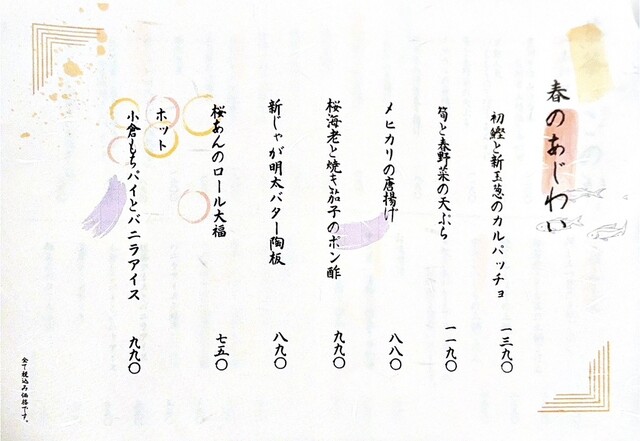 春のあじわい
初鰹と新玉葱のカルパッチョ 一三九〇
筍と春野菜の天ぷら 一一九〇
メヒカリの唐揚げ 八八〇
桜海老と焼き茄子のポン酢 九九〇
新じゃが明太バター陶板 八九〇
桜あんのロール大福 七五〇
ホット
小倉もちパイとバニラアイス 九九〇
全て税込み価格です。